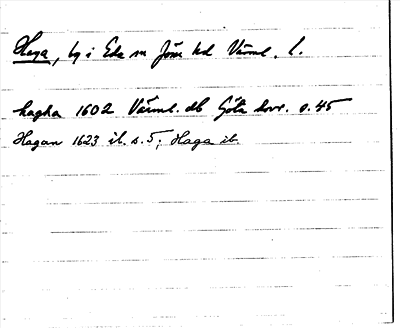 Haga, by i Eda sn Jösse hd Värml. l.
hagha 1602 Värml. db Göta hovr. s. 45
Hagan 1623 ib. s. 5; Haga ib.